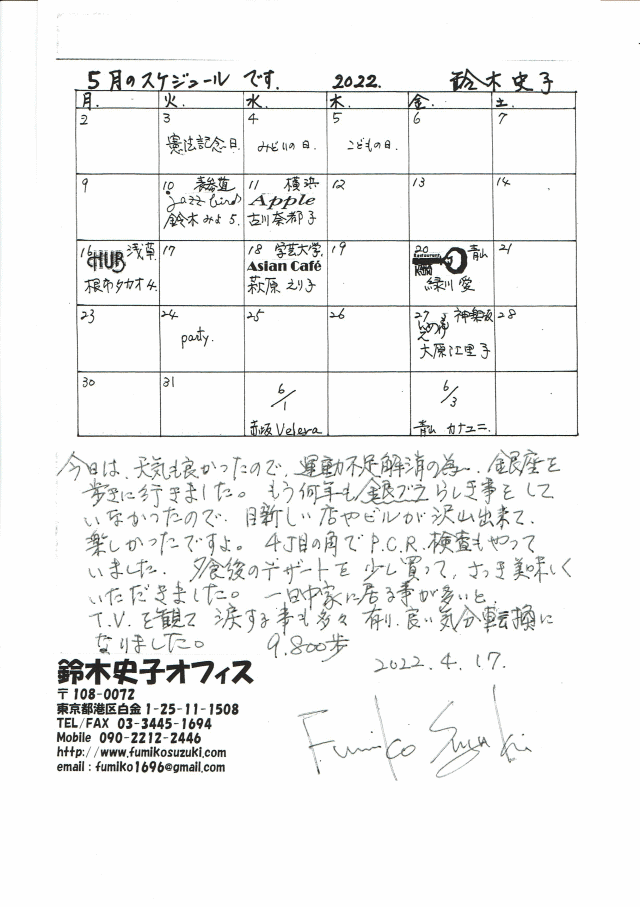 5月のスケジュール です. 2022. 鈴木史子
月. 火. 水. 木. 金. 土.
2 3 4 5 6 7
憲法記念日. みどりの日. こどもの日.
9 10 表参道 11 横浜 12 13 14
Jazz bird Apple
鈴木みよ 5. 古川奈都子
16 浅草 17 18 学芸大学. 19 20 青山 21
HUB Asian Café Restaurant
根市タカオ 4. 萩原えり子 緑川愛
23 24 25 26 27 神楽坂 28
party.
大原江里子
30 31 6/1 6/3
赤坂 Velera 青山 カナユニ.
今日は、天気も良かったので、運動不足解消の為、銀座を
歩きに行きました。もう何年も銀ブラらしき事をして
いなかったので、目新しい店やビルが沢山出来て、
楽しかったですよ。4丁目の角でP.C.R.検査もやって
いました. 夕食後のデザートを少し買って, さっき美味しく
いただきました。一日中家に居る事が多いと、
T.V.を観て 涙する事も多々 有り、良い気分転換に
なりました。 9.800歩
2022.4.17.
鈴木史子オフィス
〒108-0072
東京都港区白金 1-25-11-1508
TEL/FAX 03-3445-1694
Mobile 090-2212-2446
http://www.fumikosuzuki.com
email : fumiko1696@gmail.com
Fumiko Suzuki